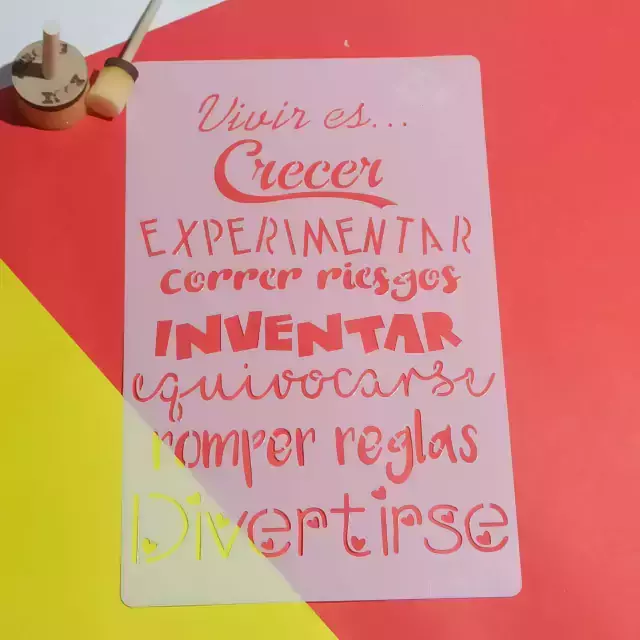 Vivir es...
Crecer
EXPERIMENTAR
correr riesgos
INVENTAR
equivocarse
romper reglas
Divertirse